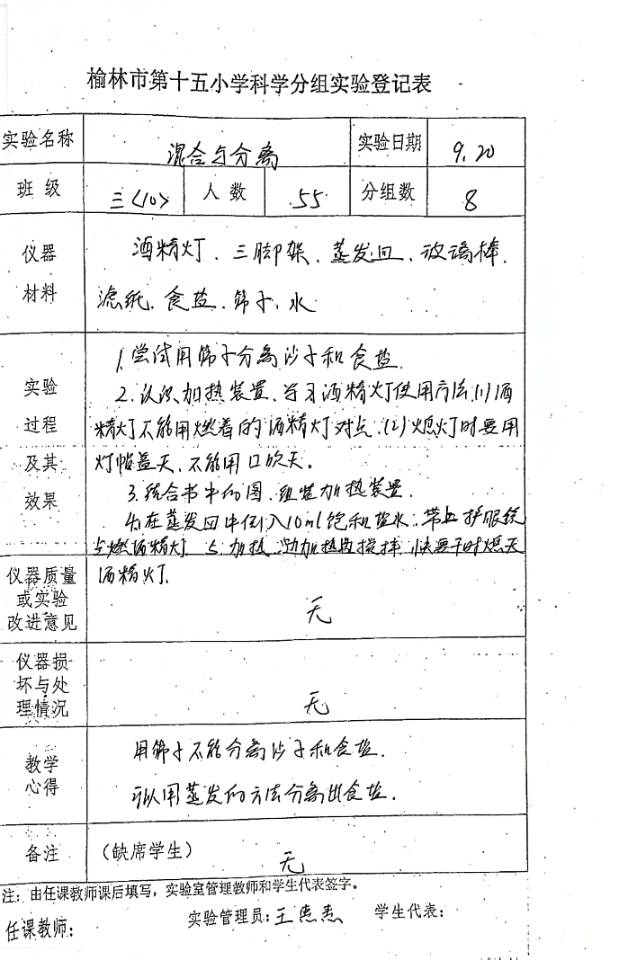 榆林市第十五小学科学分组实验登记表
实验名称 混合与分离 实验日期 9.20
班级 三<10> 人数 55 分组数 8
仪器 酒精灯、三脚架、蒸发皿、玻璃棒、
材料 滤纸、食盐、筛子、水
1.尝试用筛子分离沙子和食盐
实验 2.认识加热装置、学习酒精灯使用方法(1)酒
过程 精灯不能用燃着的酒精灯对点.(2)熄灯时要用
及其 灯帽盖灭、不能用口吹灭。
3.结合书中的图、组装加热装置.
效果 4.在蒸发皿中倒入10ml饱和盐水:带上护眼镜
点燃酒精灯 5.加热 边加热边搅拌 快要干时熄灭
仪器质量 酒精灯.
或实验
改进意见 无
仪器损
坏与处
理情况 无
教学 用筛子不能分离沙子和食盐.
心得 可以用蒸发的方法分离出食盐.
备注 (缺席学生) 无
注:由任课教师课后填写,实验室管理教师和学生代表签字。
任课教师: 实验管理员: 王 学生代表: